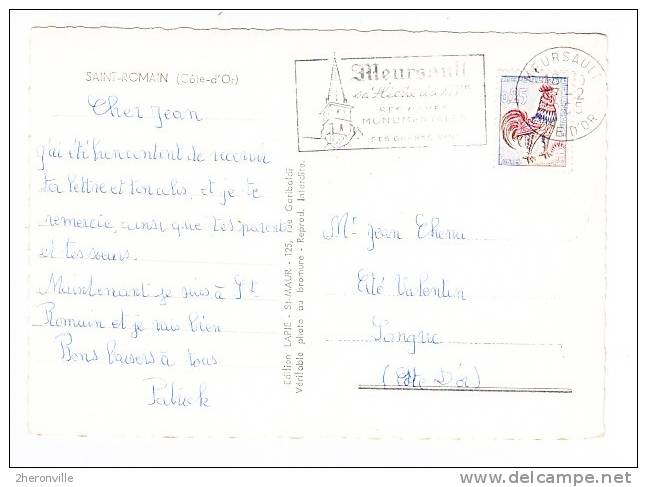 SAINT-ROMAIN (Côte-d'Or)
Cher Jean
j'ai été très content de recevoir
ta lettre et ton colis, et je te
remercie, ainsi que tes parents
et tes sœurs.
Maintenant je suis à St
Romain et je vais bien
Bons baisers à tous
Patrick
Edition LAPIE - St-MAUR - 125, rue Garibaldi
Véritable photo au bromure - Reprod. Interdite.
Meursault
sa Flèche du XVe
SES CAVES
MONUMENTALES
SES GRANDS VINS
MEURSAULT
COTE D'OR
0,25
Mr Jean Chenu
Cité Valentin
(Côte D'Or)
2heronville
www.delcampe.net